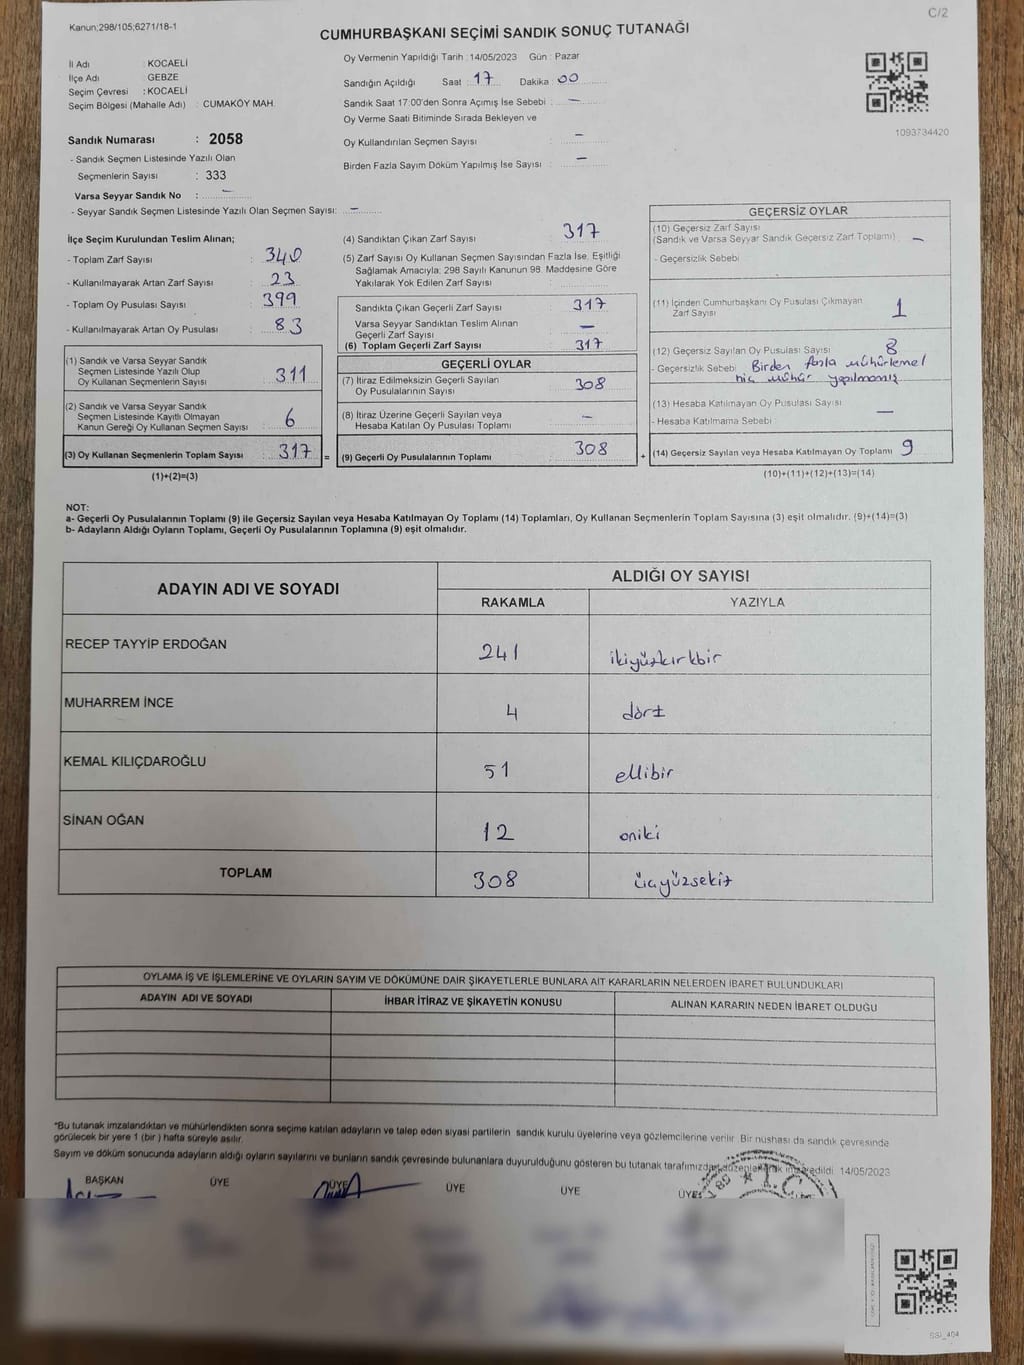 C/2
Kanun:298/105;6271/18-1
CUMHURBAŞKANI SEÇİMİ SANDIK SONUÇ TUTANAĞI
İl Adı : KOCAELİ
İlçe Adı : GEBZE
Seçim Çevresi : KOCAELİ
Seçim Bölgesi (Mahalle Adı) : CUMAKÖY MAH.
Sandık Numarası : 2058
- Sandık Seçmen Listesinde Yazılı Olan
Seçmenlerin Sayısı : 333
Varsa Seyyar Sandık No : –
- Seyyar Sandık Seçmen Listesinde Yazılı Olan Seçmen Sayısı: –
Oy Vermenin Yapıldığı Tarih : 14/05/2023 Gün : Pazar
Sandığın Açıldığı Saat : 17 Dakika : 00
Sandık Saat 17:00'den Sonra Açımış İse Sebebi : –
Oy Verme Saati Bitiminde Sırada Bekleyen ve
Oy Kullandırılan Seçmen Sayısı : –
Birden Fazla Sayım Döküm Yapılmış İse Sayısı : –
1093734420
İlçe Seçim Kurulundan Teslim Alınan;
- Toplam Zarf Sayısı : 340
- Kullanılmayarak Artan Zarf Sayısı : 23
- Toplam Oy Pusulası Sayısı : 399
- Kullanılmayarak Artan Oy Pusulası : 83
(1) Sandık ve Varsa Seyyar Sandık
Seçmen Listesinde Yazılı Olup
Oy Kullanan Seçmenlerin Sayısı : 311
(2) Sandık ve Varsa Seyyar Sandık
Seçmen Listesinde Kayıtlı Olmayan
Kanun Gereği Oy Kullanan Seçmen Sayısı : 6
(3) Oy Kullanan Seçmenlerin Toplam Sayısı : 317 =
(1)+(2)=(3)
(4) Sandıktan Çıkan Zarf Sayısı : 317
(5) Zarf Sayısı Oy Kullanan Seçmen Sayısından Fazla İse, Eşitliği
Sağlamak Amacıyla; 298 Sayılı Kanunun 98. Maddesine Göre
Yakılarak Yok Edilen Zarf Sayısı
Sandıkta Çıkan Geçerli Zarf Sayısı : 317
Varsa Seyyar Sandıktan Teslim Alınan
Geçerli Zarf Sayısı : –
(6) Toplam Geçerli Zarf Sayısı : 317
GEÇERLİ OYLAR
(7) İtiraz Edilmeksizin Geçerli Sayılan
Oy Pusulalarının Sayısı : 308
(8) İtiraz Üzerine Geçerli Sayılan veya
Hesaba Katılan Oy Pusulası Toplamı : –
(9) Geçerli Oy Pusulalarının Toplamı : 308 +
GEÇERSİZ OYLAR
(10) Geçersiz Zarf Sayısı
(Sandık ve Varsa Seyyar Sandık Geçersiz Zarf Toplamı) –
- Geçersizlik Sebebi
(11) İçinden Cumhurbaşkanı Oy Pusulası Çıkmayan
Zarf Sayısı 1
(12) Geçersiz Sayılan Oy Pusulası Sayısı 8
- Geçersizlik Sebebi Birden fazla mühürlemel
hiç mühür yapılmamış
(13) Hesaba Katılmayan Oy Pusulası Sayısı –
- Hesaba Katılmama Sebebi :
(14) Geçersiz Sayılan veya Hesaba Katılmayan Oy Toplamı 9
(10)+(11)+(12)+(13)=(14)
NOT:
a- Geçerli Oy Pusulalarının Toplamı (9) ile Geçersiz Sayılan veya Hesaba Katılmayan Oy Toplamı (14) Toplamları, Oy Kullanan Seçmenlerin Toplam Sayısına (3) eşit olmalıdır. (9)+(14)=(3)
b- Adayların Aldığı Oyların Toplamı, Geçerli Oy Pusulalarının Toplamına (9) eşit olmalıdır.
ADAYIN ADI VE SOYADI ALDIĞI OY SAYISI
RAKAMLA YAZIYLA
RECEP TAYYİP ERDOĞAN 241 ikiyüzkırkbir
MUHARREM İNCE 4 dört
KEMAL KILIÇDAROĞLU 51 ellibir
SİNAN OĞAN 12 oniki
TOPLAM 308 üçyüzsekiz
OYLAMA İŞ VE İŞLEMLERİNE VE OYLARIN SAYIM VE DÖKÜMÜNE DAİR ŞİKAYETLERLE BUNLARA AİT KARARLARIN NELERDEN İBARET BULUNDUKLARI
ADAYIN ADI VE SOYADI İHBAR İTİRAZ VE ŞİKAYETİN KONUSU ALINAN KARARIN NEDEN İBARET OLDUĞU
*Bu tutanak imzalandıktan ve mühürlendikten sonra seçime katılan adayların ve talep eden siyasi partilerin sandık kurulu üyelerine veya gözlemcilerine verilir. Bir nüshası da sandık çevresinde
görülecek bir yere 1 (bir) hafta süreyle asılır.
Sayım ve döküm sonucunda adayların aldığı oyların sayılarını ve bunların sandık çevresinde bulunanlara duyurulduğunu gösteren bu tutanak tarafımızdan düzenlenerek imza edildi. 14/05/2023
BAŞKAN ÜYE ÜYE ÜYE ÜYE ÜYE
T.C.
SSI_404